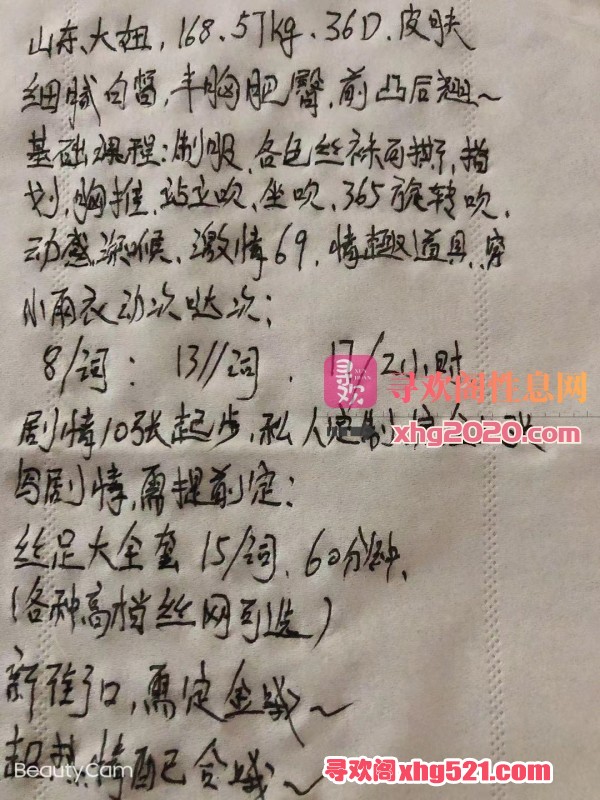 山东、大妞，168.57kg、36D.皮肤
细腻白皙，丰胸肥臀，前凸后翘～
基础课程：制服、各色丝袜可撕，指
划，胸推，站立吹、坐吹、365旋转吹，
动感深喉、激情69，情趣道具，穿
小雨衣动次哒次；
8/词： 13//词 . 17/2小时
寻欢
寻欢阁性息网
xhg2020.com
剧情10张起步，私人定制
写剧情，需提前定；
丝足大全套 15/词，60分钟，
（各种高档丝网可选）
新街口，需定金哦～
BeautyCam
寻欢阁xhg521.com